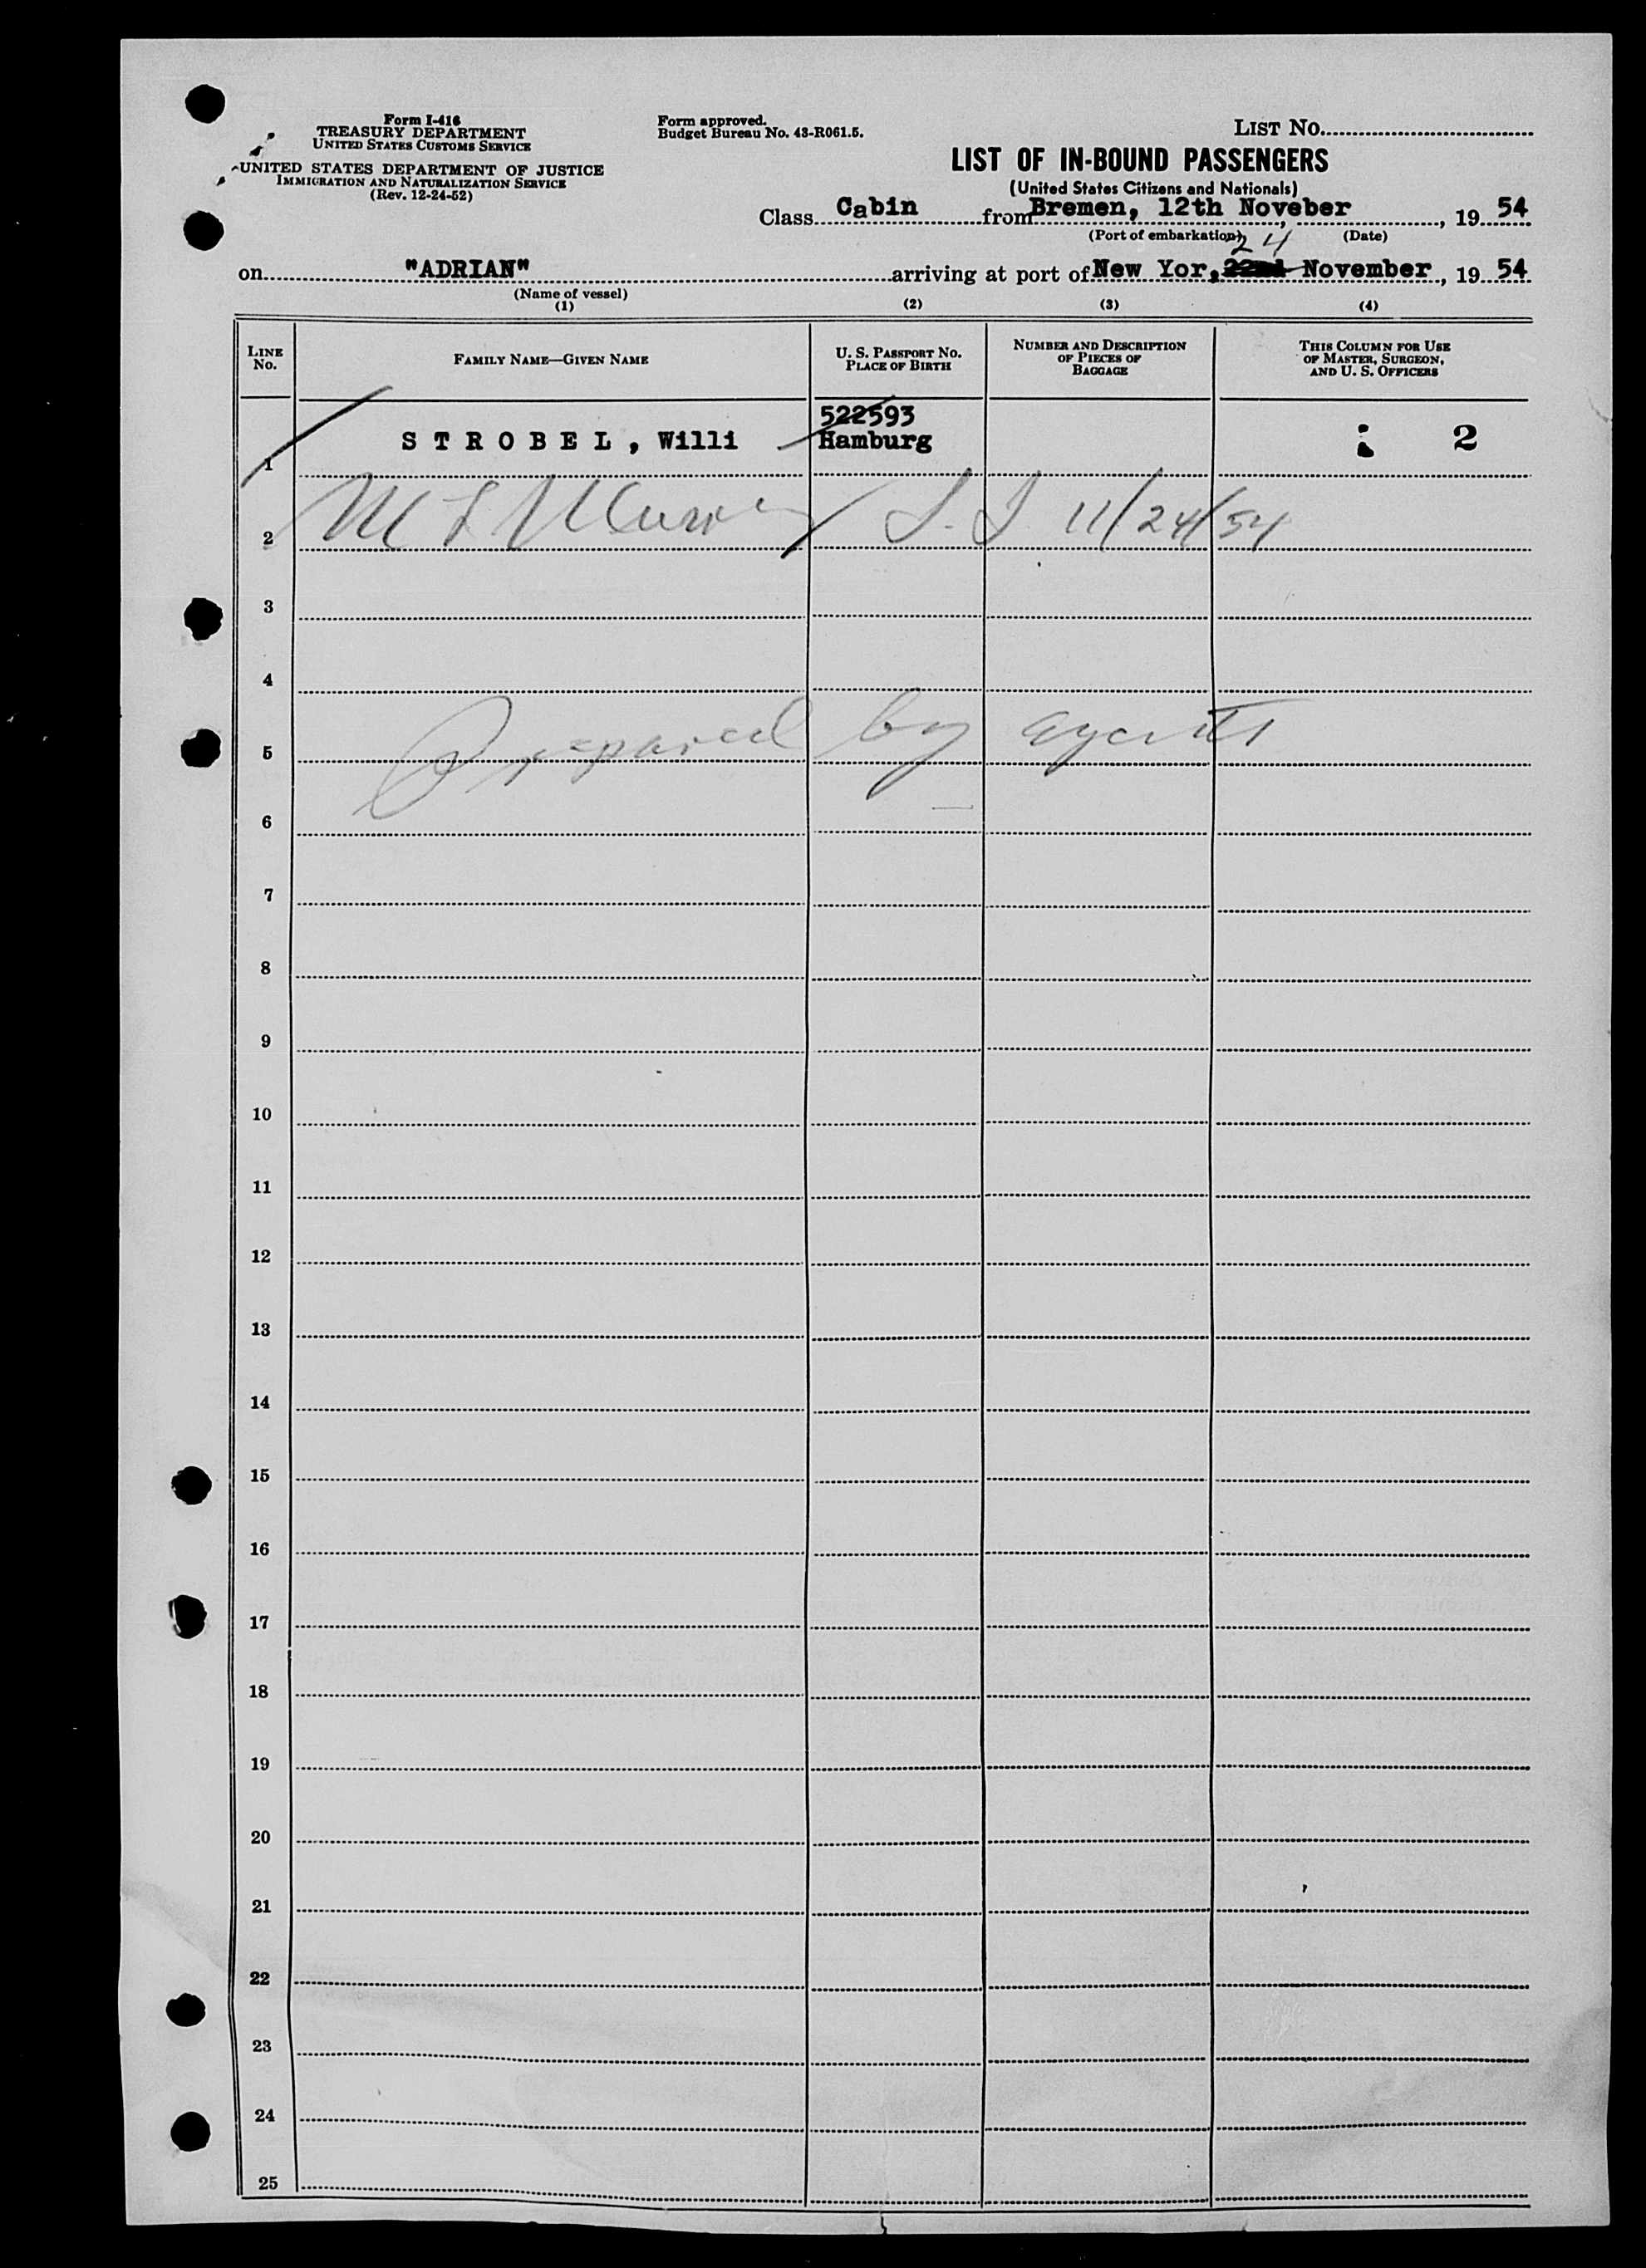 Form I-416
TREASURY DEPARTMENT
UNITED STATES CUSTOMS SERVICE
UNITED STATES DEPARTMENT OF JUSTICE
IMMIGRATION AND NATURALIZATION SERVICE
(Rev. 12-24-52)
Form approved.
Budget Bureau No. 43-R061.5.
LIST No.
LIST OF IN-BOUND PASSENGERS
(United States Citizens and Nationals)
Class Cabin from Bremen, 12th Noveber, 19 54
(Port of embarkation) (Date)
24
on "ADRIAN" arriving at port of New Yor, 22nd November, 19 54
(Name of vessel)
(1) (2) (3) (4)
LINE No.
FAMILY NAME—GIVEN NAME
U. S. PASSPORT No.
PLACE OF BIRTH
NUMBER AND DESCRIPTION
OF PIECES OF
BAGGAGE
THIS COLUMN FOR USE
OF MASTER, SURGEON,
AND U. S. OFFICERS
522593
1 S T R O B E L , Willi Hamburg 2
2 11/24/54
3
4
5 Prepared by agents
6
7
8
9
10
11
12
13
14
15
16
17
18
19
20
21
22
23
24
25